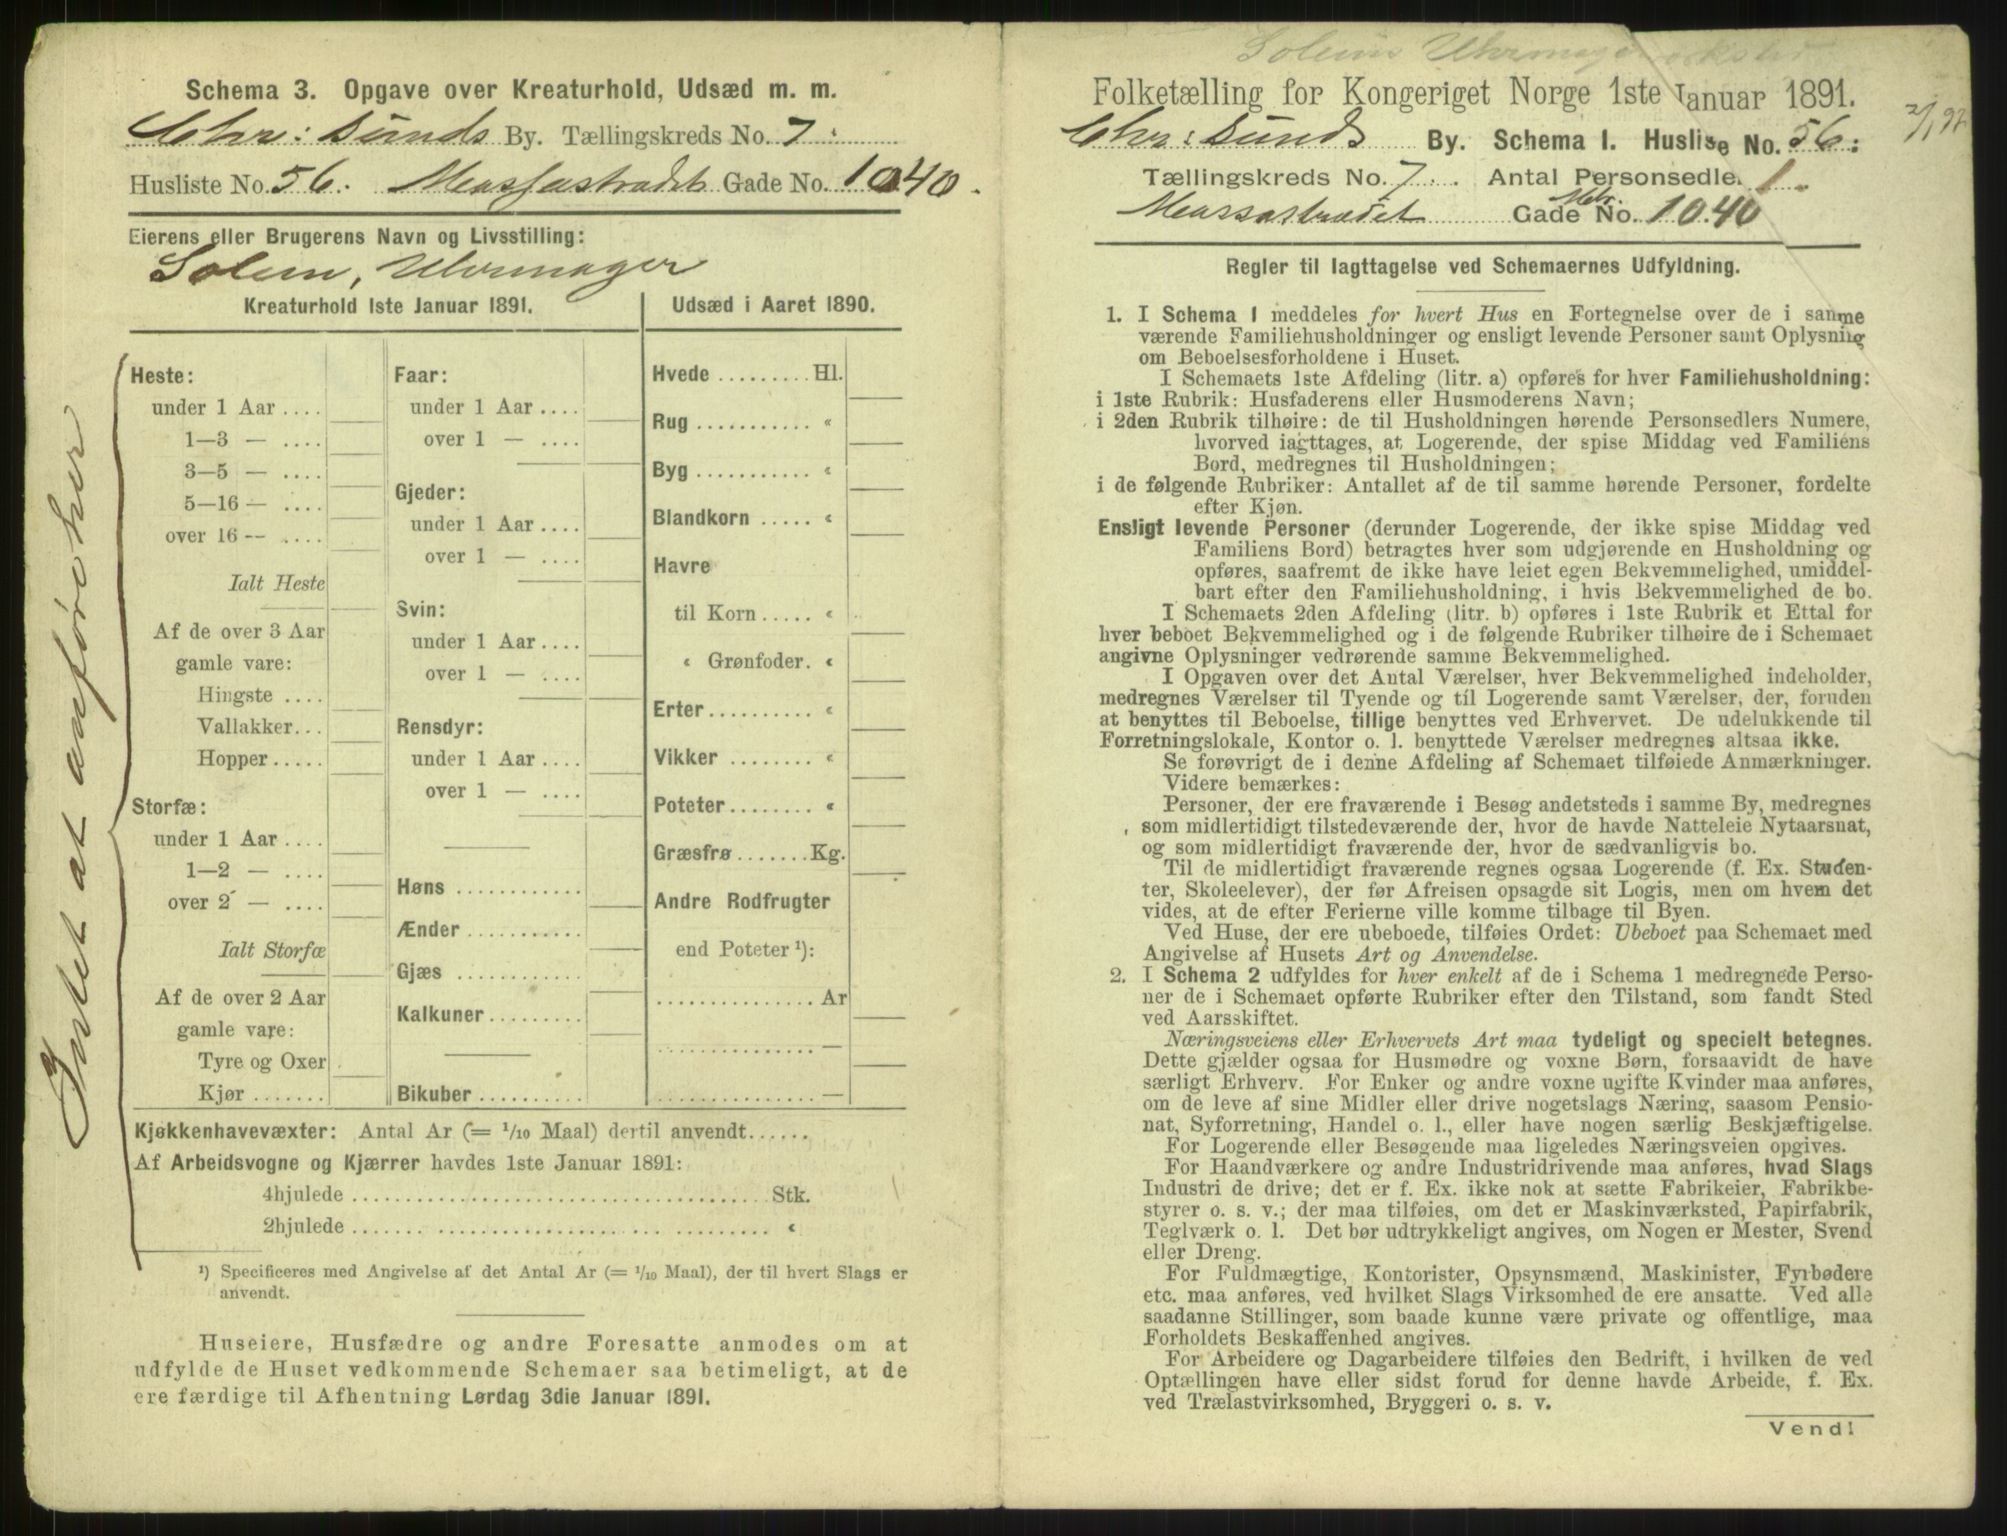 Schema 3. Opgave over Kreaturhold, Udsæd m. m.
Chr: sunds By. Tællingskreds No. 7.
Husliste No. 56. Gade No. 1040.
Eierens eller Brugerens Navn og Livsstilling:
Solem, Uhrmager
Kreaturhold 1ste Januar 1891.
Heste:
under 1 Aar ....
1—3 — ....
3—5 — ....
5—16 — ....
over 16 — ....
Ialt Heste
Af de over 3 Aar
gamle vare:
Hingste ....
Vallakker...
Hopper .....
Storfæ:
under 1 Aar ....
1—2 — ....
over 2 — ....
Ialt Storfæ
Af de over 2 Aar
gamle vare:
Tyre og Oxer
Kjør .......
Faar:
under 1 Aar ....
over 1 — ....
Gjeder:
under 1 Aar ....
over 1 — ....
Svin:
under 1 Aar ....
over 1 — ....
Rensdyr:
under 1 Aar ....
over 1 — ....
Høns ............
Ænder ...........
Gjæs ............
Kalkuner.........
Bikuber ..........
Udsæd i Aaret 1890.
Hvede ......... Hl.
Rug ........... "
Byg ........... "
Blandkorn ..... "
Havre
til Korn ..... "
" Grønfoder. "
Erter.......... "
Vikker ........ "
Poteter........ "
Græsfrø....... Kg.
Andre Rodfrugter
end Poteter ¹):
............... Ar
............... —
............... —
Intet at anføre her
Kjøkkenhavevæxter: Antal Ar (= 1/10 Maal) dertil anvendt......
Af Arbeidsvogne og Kjærrer havdes 1ste Januar 1891:
4hjulede ...................................... Stk.
2hjulede ...................................... "
¹) Specificeres med Angivelse af det Antal Ar (= 1/10 Maal), der til hvert Slags er
anvendt.
Huseiere, Husfædre og andre Foresatte anmodes om at
udfylde de Huset vedkommende Schemaer saa betimeligt, at de
ere færdige til Afhentning Lørdag 3die Januar 1891.
Solems Uhrmager
Folketælling for Kongeriget Norge 1ste Januar 1891.
Chr: sunds By. Schema I. Husliste No. 56.
Tællingskreds No. 7. Antal Personsedle. 1.
Gade No. 1040
Regler til Iagttagelse ved Schemaernes Udfyldning.
1. I Schema I meddeles for hvert Hus en Fortegnelse over de i samme
værende Familiehusholdninger og ensligt levende Personer samt Oplysning
om Beboelsesforholdene i Huset.
I Schemaets 1ste Afdeling (litr. a) opføres for hver Familiehusholdning:
i 1ste Rubrik: Husfaderens eller Husmoderens Navn;
i 2den Rubrik tilhøire: de til Husholdningen hørende Personsedlers Numere,
hvorved iagttages, at Logerende, der spise Middag ved Familiens
Bord, medregnes til Husholdningen;
i de følgende Rubriker: Antallet af de til samme hørende Personer, fordelte
efter Kjøn.
Ensligt levende Personer (derunder Logerende, der ikke spise Middag ved
Familiens Bord) betragtes hver som udgjørende en Husholdning og
opføres, saafremt de ikke have leiet egen Bekvemmelighed, umiddel-
bart efter den Familiehusholdning, i hvis Bekvemmelighed de bo.
I Schemaets 2den Afdeling (litr. b) opføres i 1ste Rubrik et Ettal for
hver beboet Bekvemmelighed og i de følgende Rubriker tilhøire de i Schemaet
angivne Oplysninger vedrørende samme Bekvemmelighed.
I Opgaven over det Antal Værelser, hver Bekvemmelighed indeholder,
medregnes Værelser til Tyende og til Logerende samt Værelser, der, foruden
at benyttes til Beboelse, tillige benyttes ved Erhvervet. De udelukkende til
Forretningslokale, Kontor o. l. benyttede Værelser medregnes altsaa ikke.
Se forøvrigt de i denne Afdeling af Schemaet tilføiede Anmærkninger.
Videre bemærkes:
Personer, der ere fraværende i Besøg andetsteds i samme By, medregnes
som midlertidigt tilstedeværende der, hvor de havde Natteleie Nytaarsnat,
og som midlertidigt fraværende der, hvor de sædvanligvis bo.
Til de midlertidigt fraværende regnes ogsaa Logerende (f. Ex. Studen-
ter, Skoleelever), der før Afreisen opsagde sit Logis, men om hvem det
vides, at de efter Ferierne ville komme tilbage til Byen.
Ved Huse, der ere ubeboede, tilføies Ordet: Ubeboet paa Schemaet med
Angivelse af Husets Art og Anvendelse.
2. I Schema 2 udfyldes for hver enkelt af de i Schema 1 medregnede Perso-
ner de i Schemaet opførte Rubriker efter den Tilstand, som fandt Sted
ved Aarsskiftet.
Næringsveiens eller Erhvervets Art maa tydeligt og specielt betegnes.
Dette gjælder ogsaa for Husmødre og voxne Børn, forsaavidt de have
særligt Erhverv. For Enker og andre voxne ugifte Kvinder maa anføres,
om de leve af sine Midler eller drive nogetslags Næring, saasom Pensio-
nat, Syforretning, Handel o. l., eller have nogen særlig Beskjæftigelse.
For Logerende eller Besøgende maa ligeledes Næringsveien opgives.
For Haandværkere og andre Industridrivende maa anføres, hvad Slags
Industri de drive; det er f. Ex. ikke nok at sætte Fabrikeier, Fabrikbe-
styrer o. s. v.; der maa tilføies, om det er Maskinværksted, Papirfabrik,
Teglværk o. l. Det bør udtrykkeligt angives, om Nogen er Mester, Svend
eller Dreng.
For Fuldmægtige, Kontorister, Opsynsmænd, Maskinister, Fyrbødere
etc. maa anføres, ved hvilket Slags Virksomhed de ere ansatte. Ved alle
saadanne Stillinger, som baade kunne være private og offentlige, maa
Forholdets Beskaffenhed angives.
For Arbeidere og Dagarbeidere tilføies den Bedrift, i hvilken de ved
Optællingen have eller sidst forud for denne havde Arbeide, f. Ex.
ved Trælastvirksomhed, Bryggeri o. s. v.
Vend!